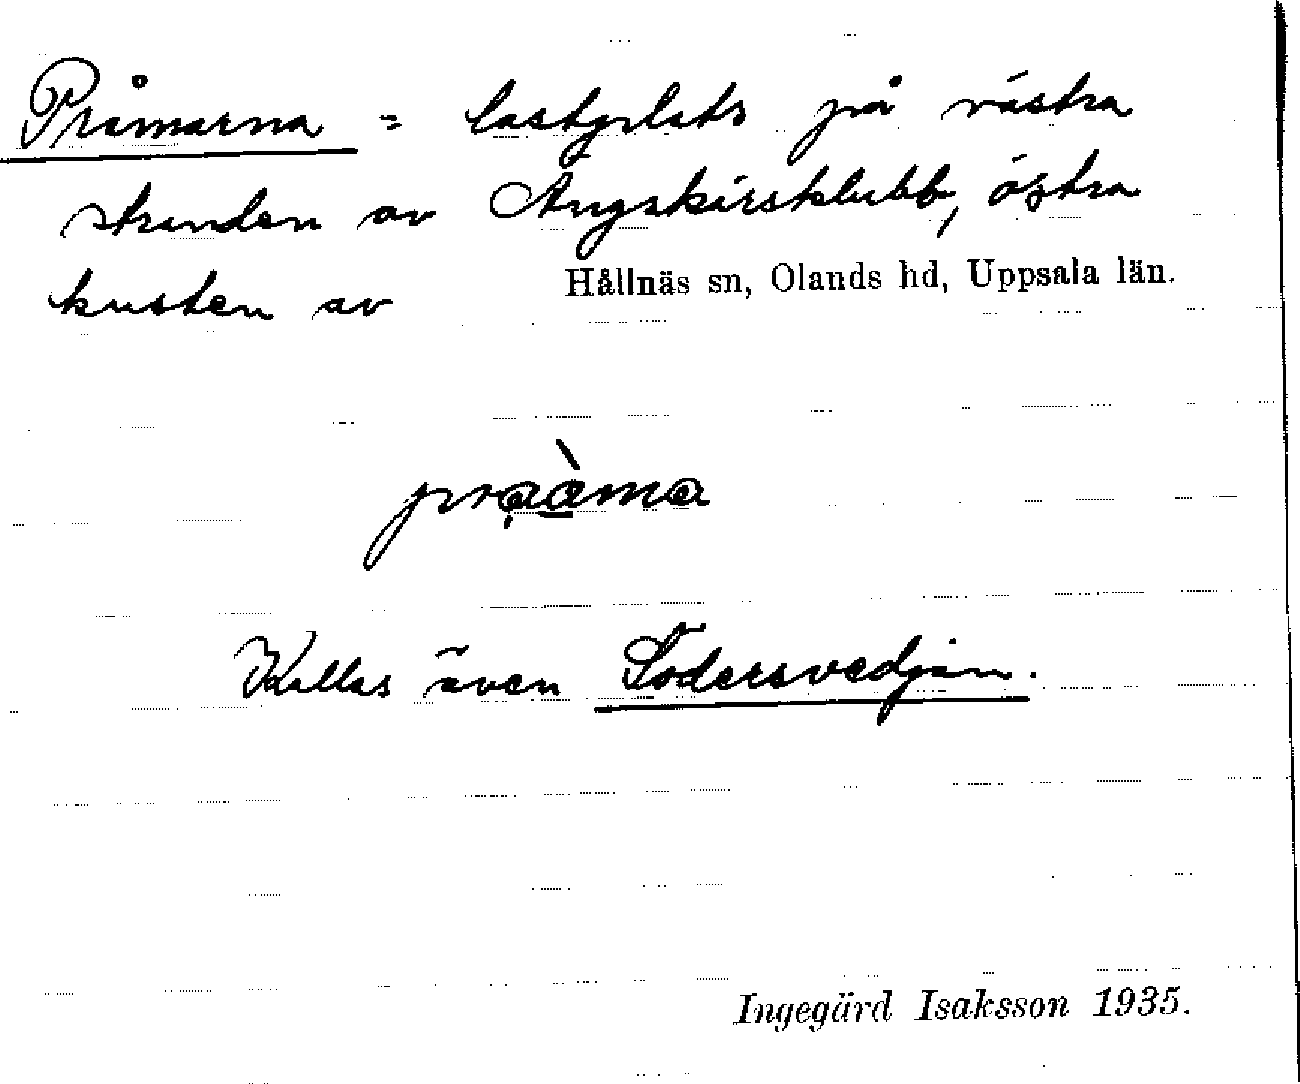 Pråmarna = lastplats på västra
stranden av Ängskärsklubb, östra
kusten av Hållnäs sn, Olands hd, Uppsala län.
Kallas även Södersvedjan.
Ingegärd Isaksson 1935.